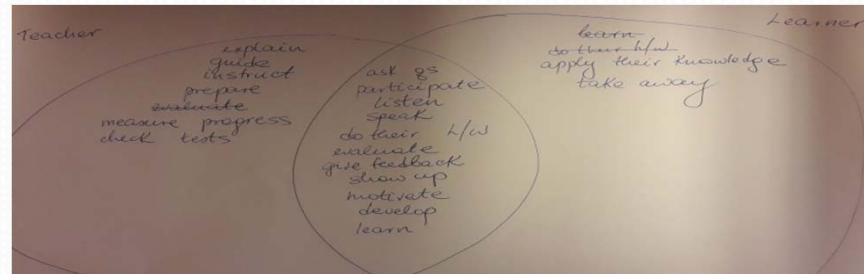 Teacher
explain
guide
instruct
prepare
evaluate
measure progress
check tests
ask qs
participate
listen
speak
do their h/w
evaluate
give feedback
show up
motivate
develop
learn
Learner
learn
do their h/w
apply their knowledge
take away